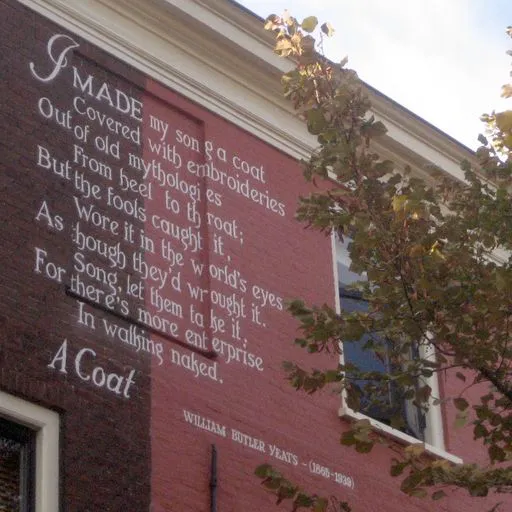 I MADE my song a coat
Covered with embroideries
Out of old mythologies
From heel to throat;
But the fools caught it,
Wore it in the world's eyes
As though they'd wrought it.
Song, let them take it,
For there's more enterprise
In walking naked.
A Coat
WILLIAM BUTLER YEATS - (1865-1939)